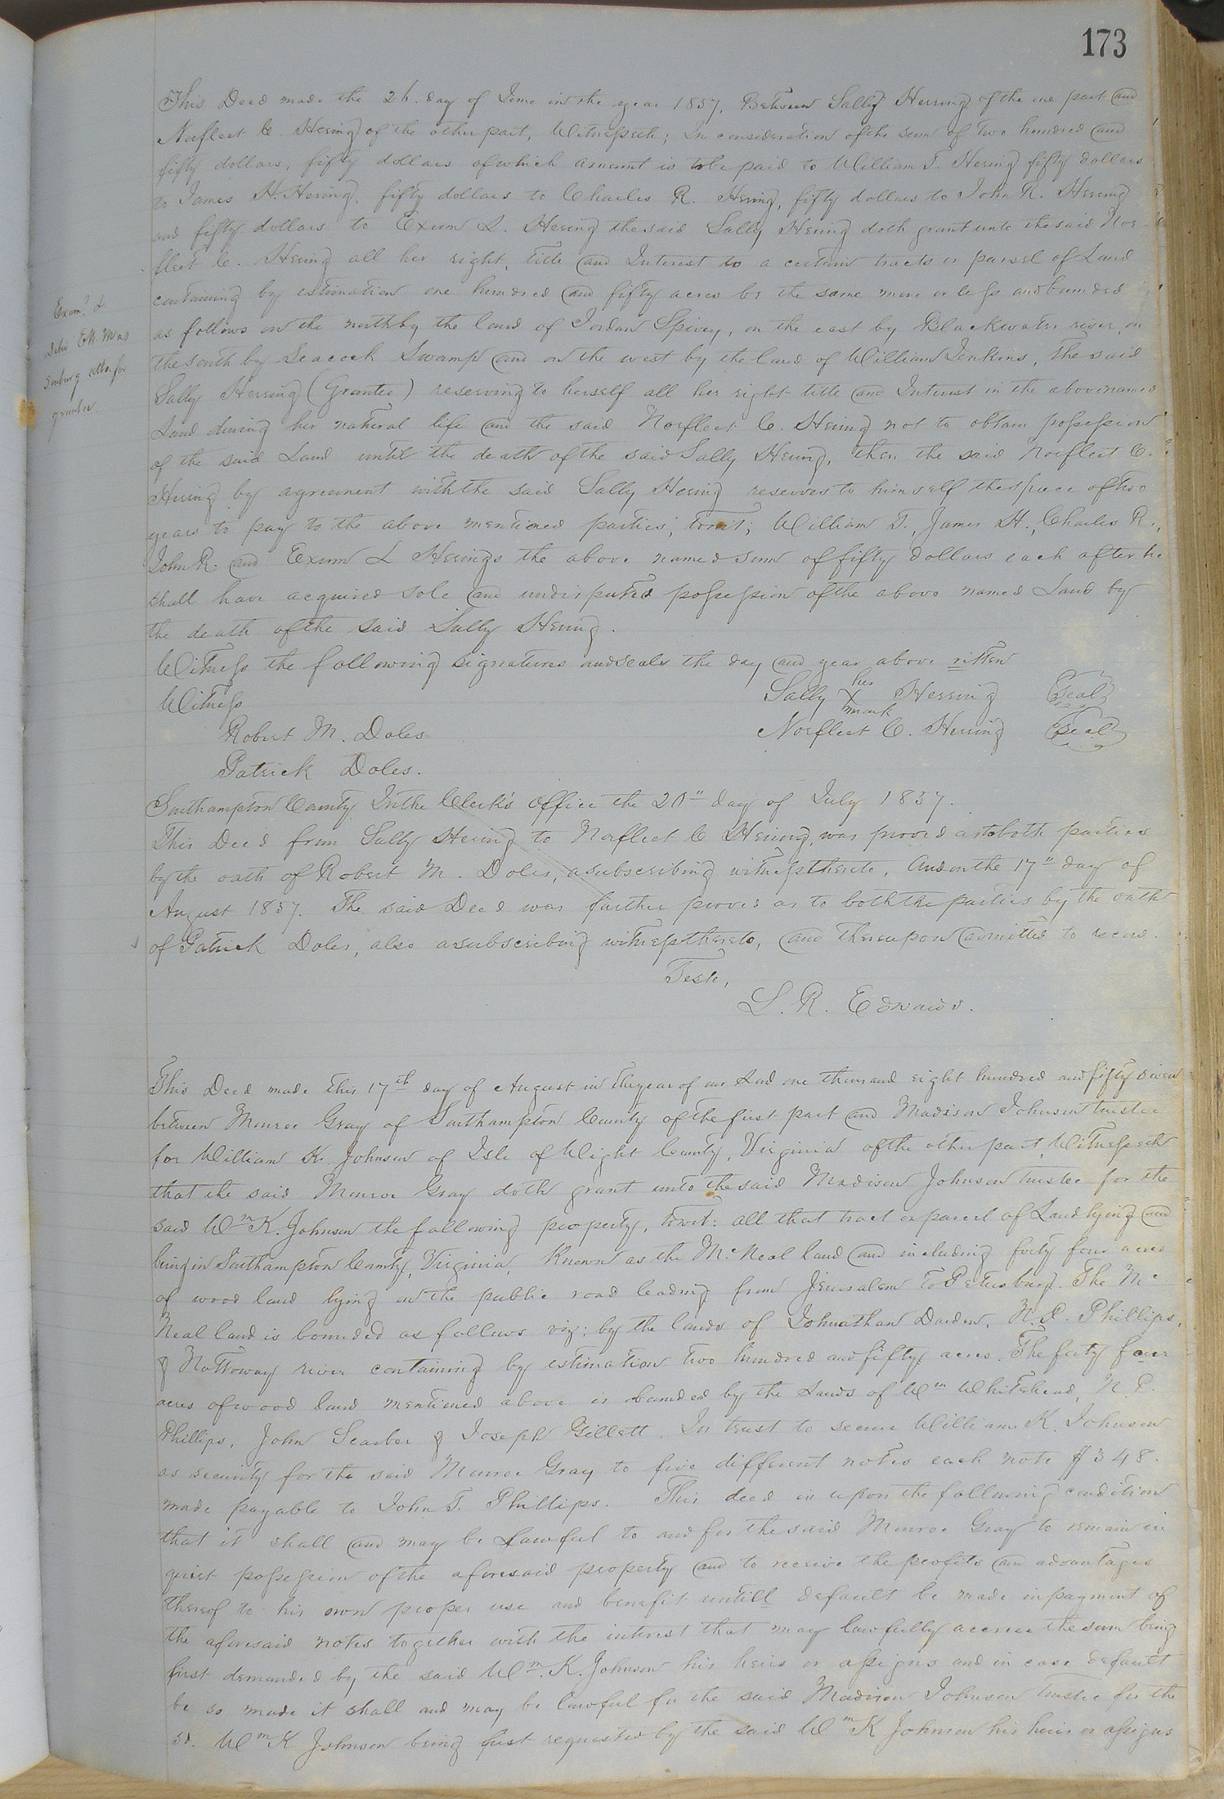 173
This Deed made the day of June in the year 1857. Between Sally Herring of the one part and
Norfleet C. Herring of the other part, Witnesseth; In consideration of the sum of two hundred and
fifty dollars, fifty dollars of which amount is to be paid to William T. Herring fifty dollars
to James H. Herring, fifty dollars to Charles R. Herring, fifty dollars to John R. Herring
and fifty dollars to Exum L. Herring the said Sally Herring doth grant unto the said Nor-
fleet C. Herring all her right, title and Interest to a certain tracts or parsel of Land
containing by estimation one hundred and fifty acres be the same more or less and bounded
as follows on the north by the land of Jordan Spivey, on the east by Blackwater river, on
the south by Seacock Swamp and on the west by the land of William Jenkins, the said
Sally Herring (Grantee) reserving to herself all her right title and Interest in the above named
Land during her natural life and the said Norfleet C. Herring not to obtain possession
of the said Land until the death of the said Sally Herring, then the said Norfleet C.
Herring by agreement with the said Sally Herring reserves to himself the space of two
years to pay to the above mentioned parties, towit; William T., James H., Charles R.,
John R. and Exum L Herrings the above named sum of fifty dollars each after he
shall have acquired sole and undisputed possession of the above named Land by
the death of the said Sally Herring.
Witness the following signatures and seals the day and year above ritten
Witness
Sally her X mark Herring Seal
Robert M. Doles
Norfleet C. Herring Seal
Patrick Doles.
Southampton County In the Clerk's office the 20" day of July 1857.
This Deed from Sally Herring to Norfleet C Herring, was proved as to both parties
by the oath of Robert M. Doles, a subscribing witness thereto, And on the 17" day of
August 1857. The said Deed was further proved as to both the parties by the oath
of Patrick Doles, also a subscribing witness thereto, and thereupon admitted to record.
Teste,
L. R. Edwards.
This Deed made this 17th day of August in the year of our Lord one thousand eight hundred and fifty seven
between Munroe Gray of Southampton County of the first part and Madison Johnson trustee
for William K. Johnson of Isle of Wight County, Virginia of the other part, Witnesseth
that the said Munroe Gray doth grant unto the said Madison Johnson trustee for the
said Wm K. Johnson the following property, towit: all that tract or parcel of Land lying and
being in Southampton County, Virginia, Known as the McNeal land and including forty four acres
of wood land lying on the public road leading from Jerusalem to Petersburg. The Mc
Neal land is bounded as follows viz: by the lands of Johnathan Darden, N. P. Phillips,
& Nottoway river containing by estimation two hundred and fifty acres. The forty four
acres of wood land mentioned above is bounded by the Lands of Wm Whitehead, N. P.
Phillips, John & Joseph Gillett. In trust to secure William K. Johnson
as security for the said Munroe Gray to five different notes each note $348.
made payable to John T. Phillips. This deed is upon the following condition
that it shall and may be Lawful to and for the said Munroe Gray to remain in
quiet possession of the aforesaid property and to receive the profits and advantages
thereof to his own proper use and benefit untill default be made in payment of
the aforesaid notes together with the interest that may lawfully accrue the sum being
first demanded by the said Wm. K. Johnson his heirs or assigns and in case default
be so made it shall and may be lawful for the said Madison Johnson trustee for the
sd. Wm K Johnson being first requested by the said Wm K Johnson his heirs or assigns